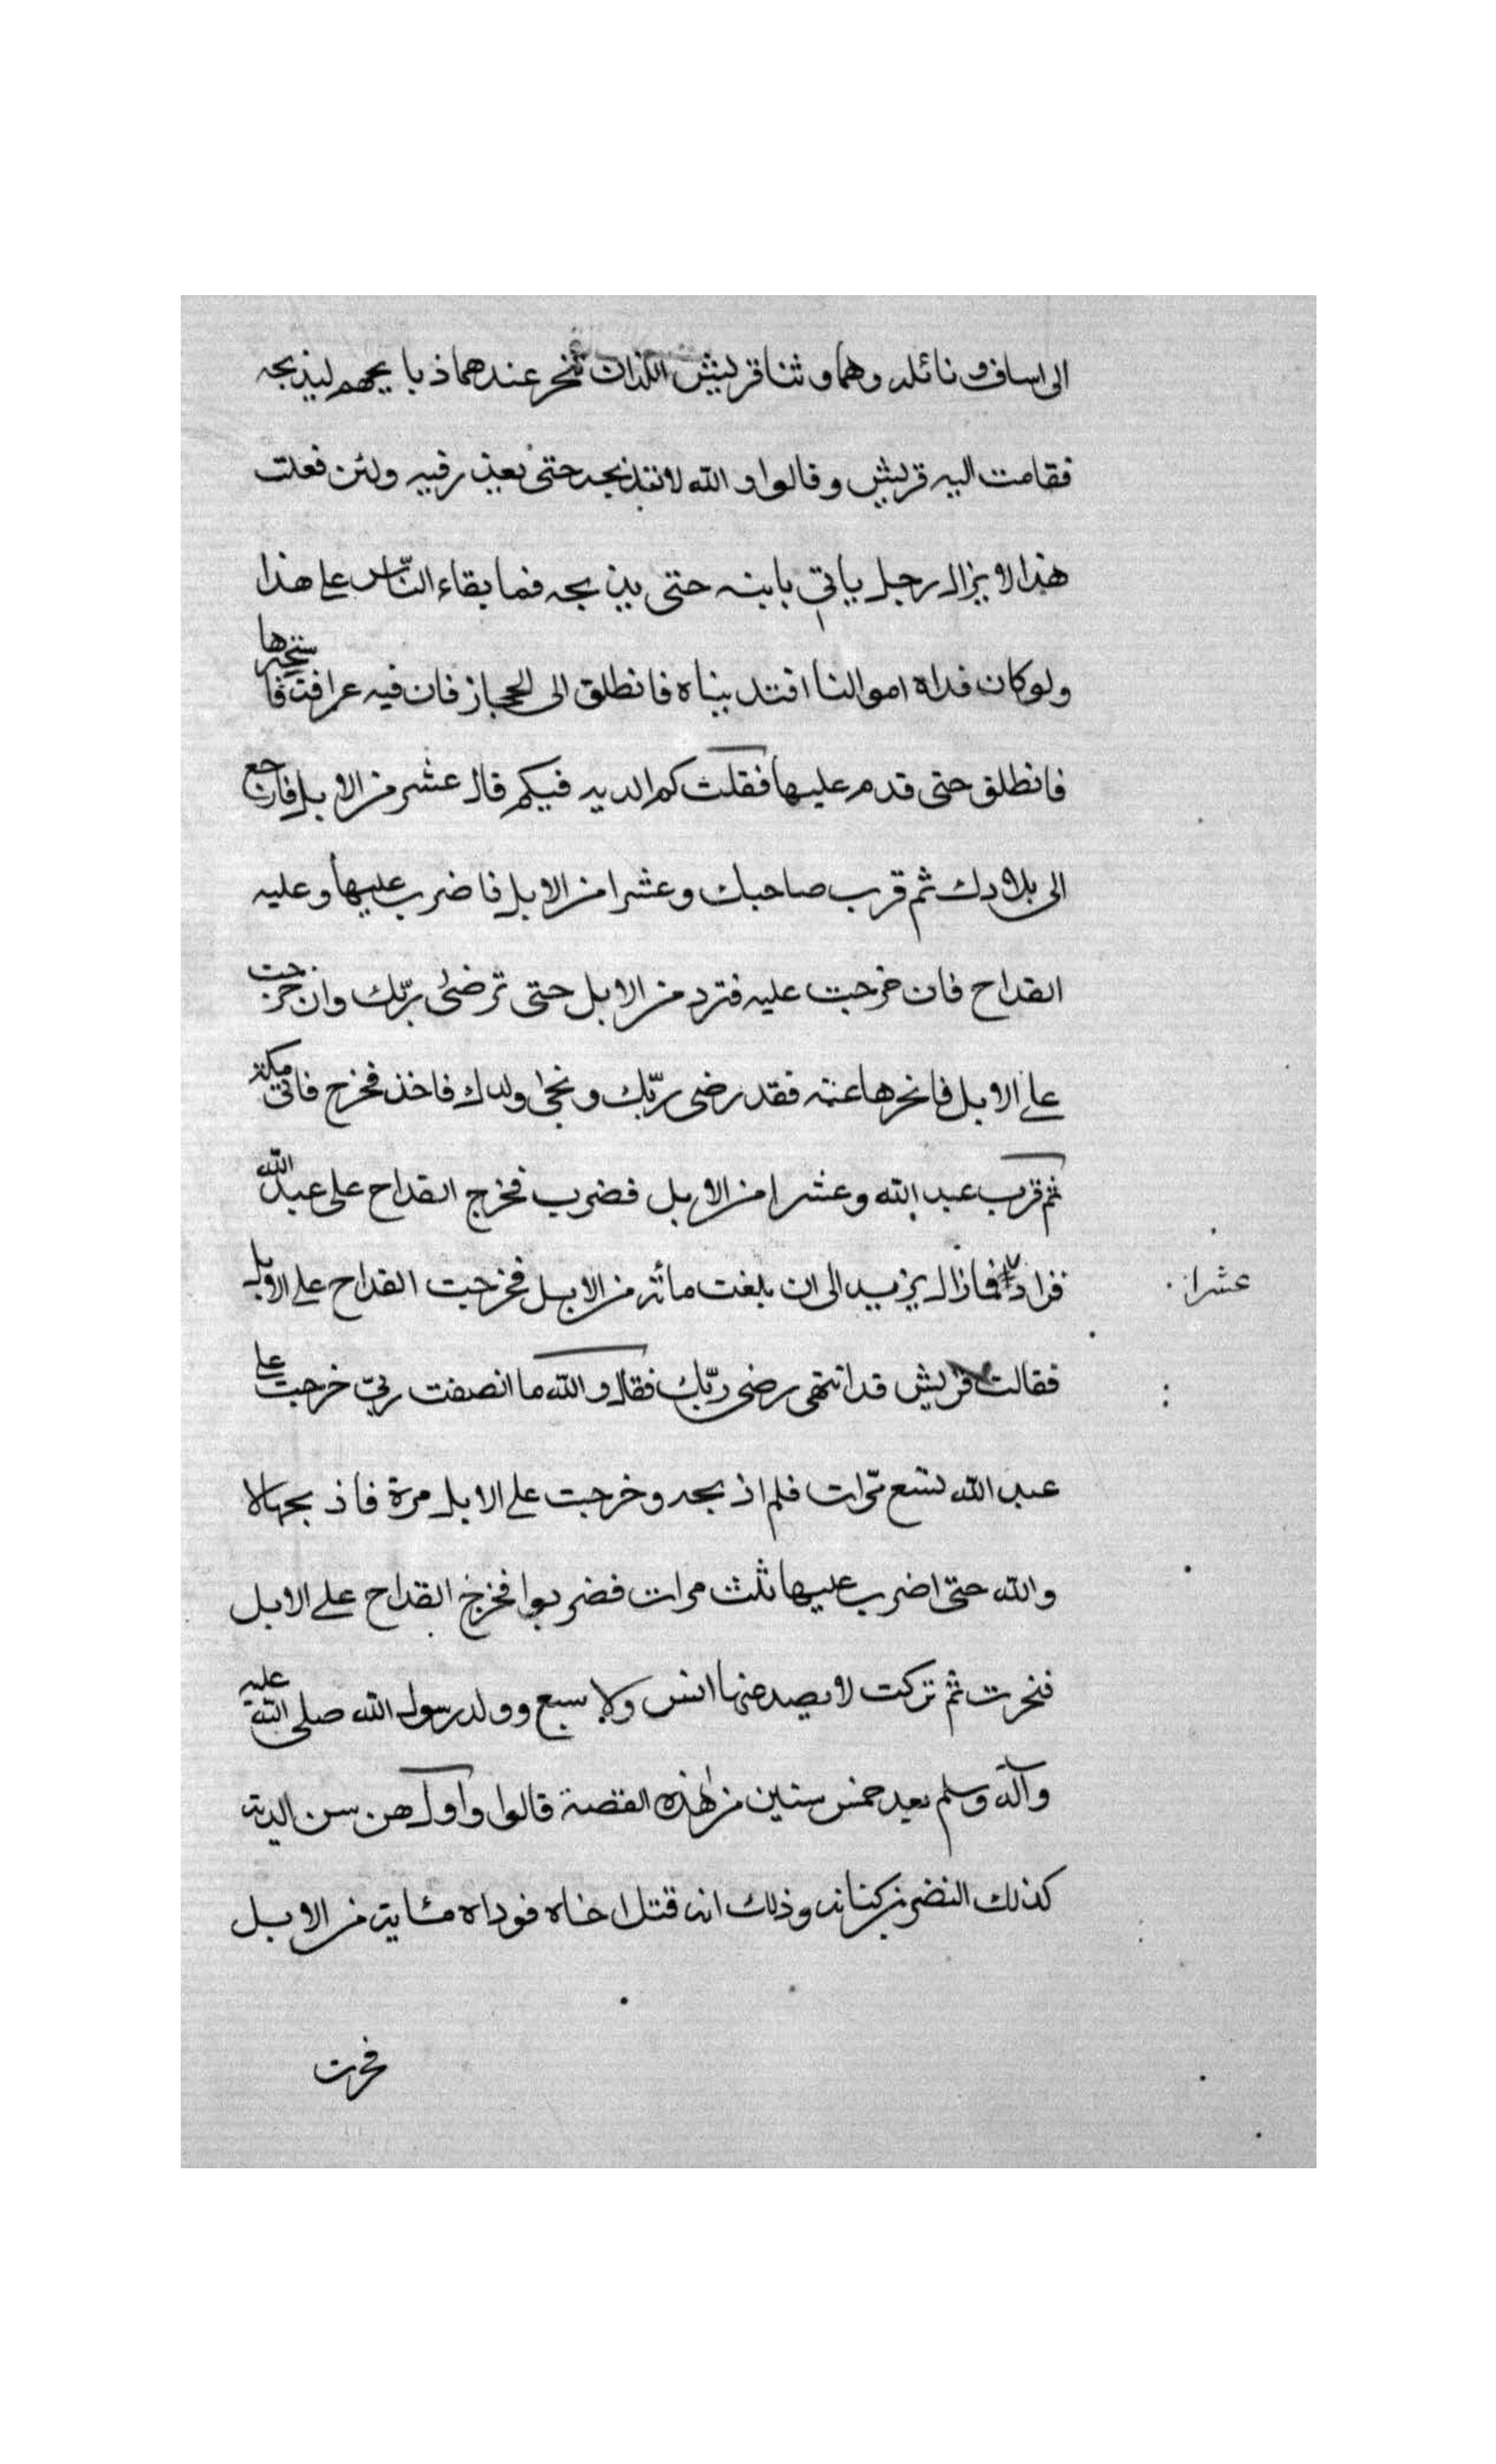 الى اساف و نائله وهما وثنا قريش اللذان تنحر عندهما ذبايحهم ليذبحه
فقامت اليه قريش وقالوا والله لا تذبحه حتى تعذر فيه ولئن فعلت
هذا لا يزال رجل ياتي بابنه حتى يذبحه فما بقاء الناس على هذا
ولو كان فداه اموالنا افتديناه فانطلق الى الحجاز فان فيه عرافة فاستخبرها
فانطلق حتى قدم عليها فقلت كم الديه فيكم قال عشر من الابل فارجع
الى بلادك ثم قرب صاحبك وعشرا من الابل فاضرب عليها وعليه
القداح فان خرجت عليه فزد من الابل حتى ترضى ربّك وان خرجت
على الابل فانحرها عنه فقد رضى ربّك ونجى ولدك فاخذ فخرج فاتى مكة
ثم قرب عبد الله وعشرا من الابل فضرب فخرج القداح على عبد الله
فزاد فمازال يزيد الى ان بلغت مأئة من الابل فخرجت القداح على الابل
عشرا
فقالت قريش قد انتهى رضى ربّك فقال والله ما انصفت ربّي خرجت على
عبد الله تسع مّرات فلم اذبحه وخرجت على الابل مرة فاذبحها لا
والله حتى اضرب عليها ثلث مرات فضربوا فخرج القداح على الابل
فنحرت ثم تركت لا يصد عنها انس ولا سبع وولد رسول الله صلى الله عليه
وآله وسلم بعد خمس سنين من هذه القصة قالوا واول من سن الدية
كذلك النضر بن كنانه وذلك انه قتل اخاه فوداه مئاية من الابل
فجرت